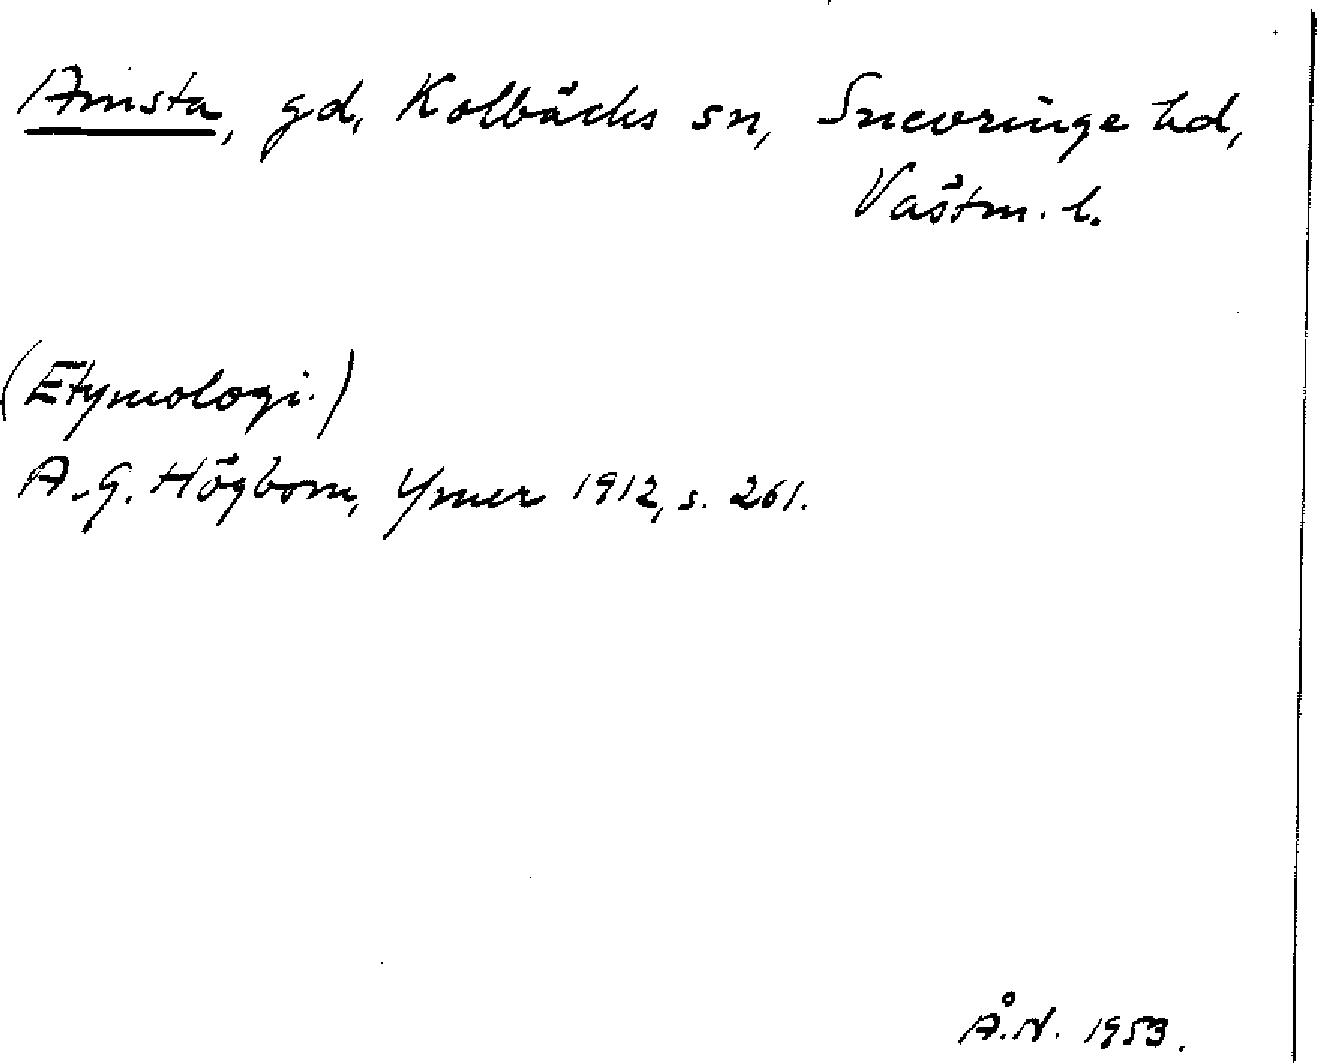 Amsta, gd, Kolbäcks sn, Snevringe hd,
Västm. l.
(Etymologi.)
A.G. Högbom, Ymer 1912, s. 261.
Å.N. 1953.